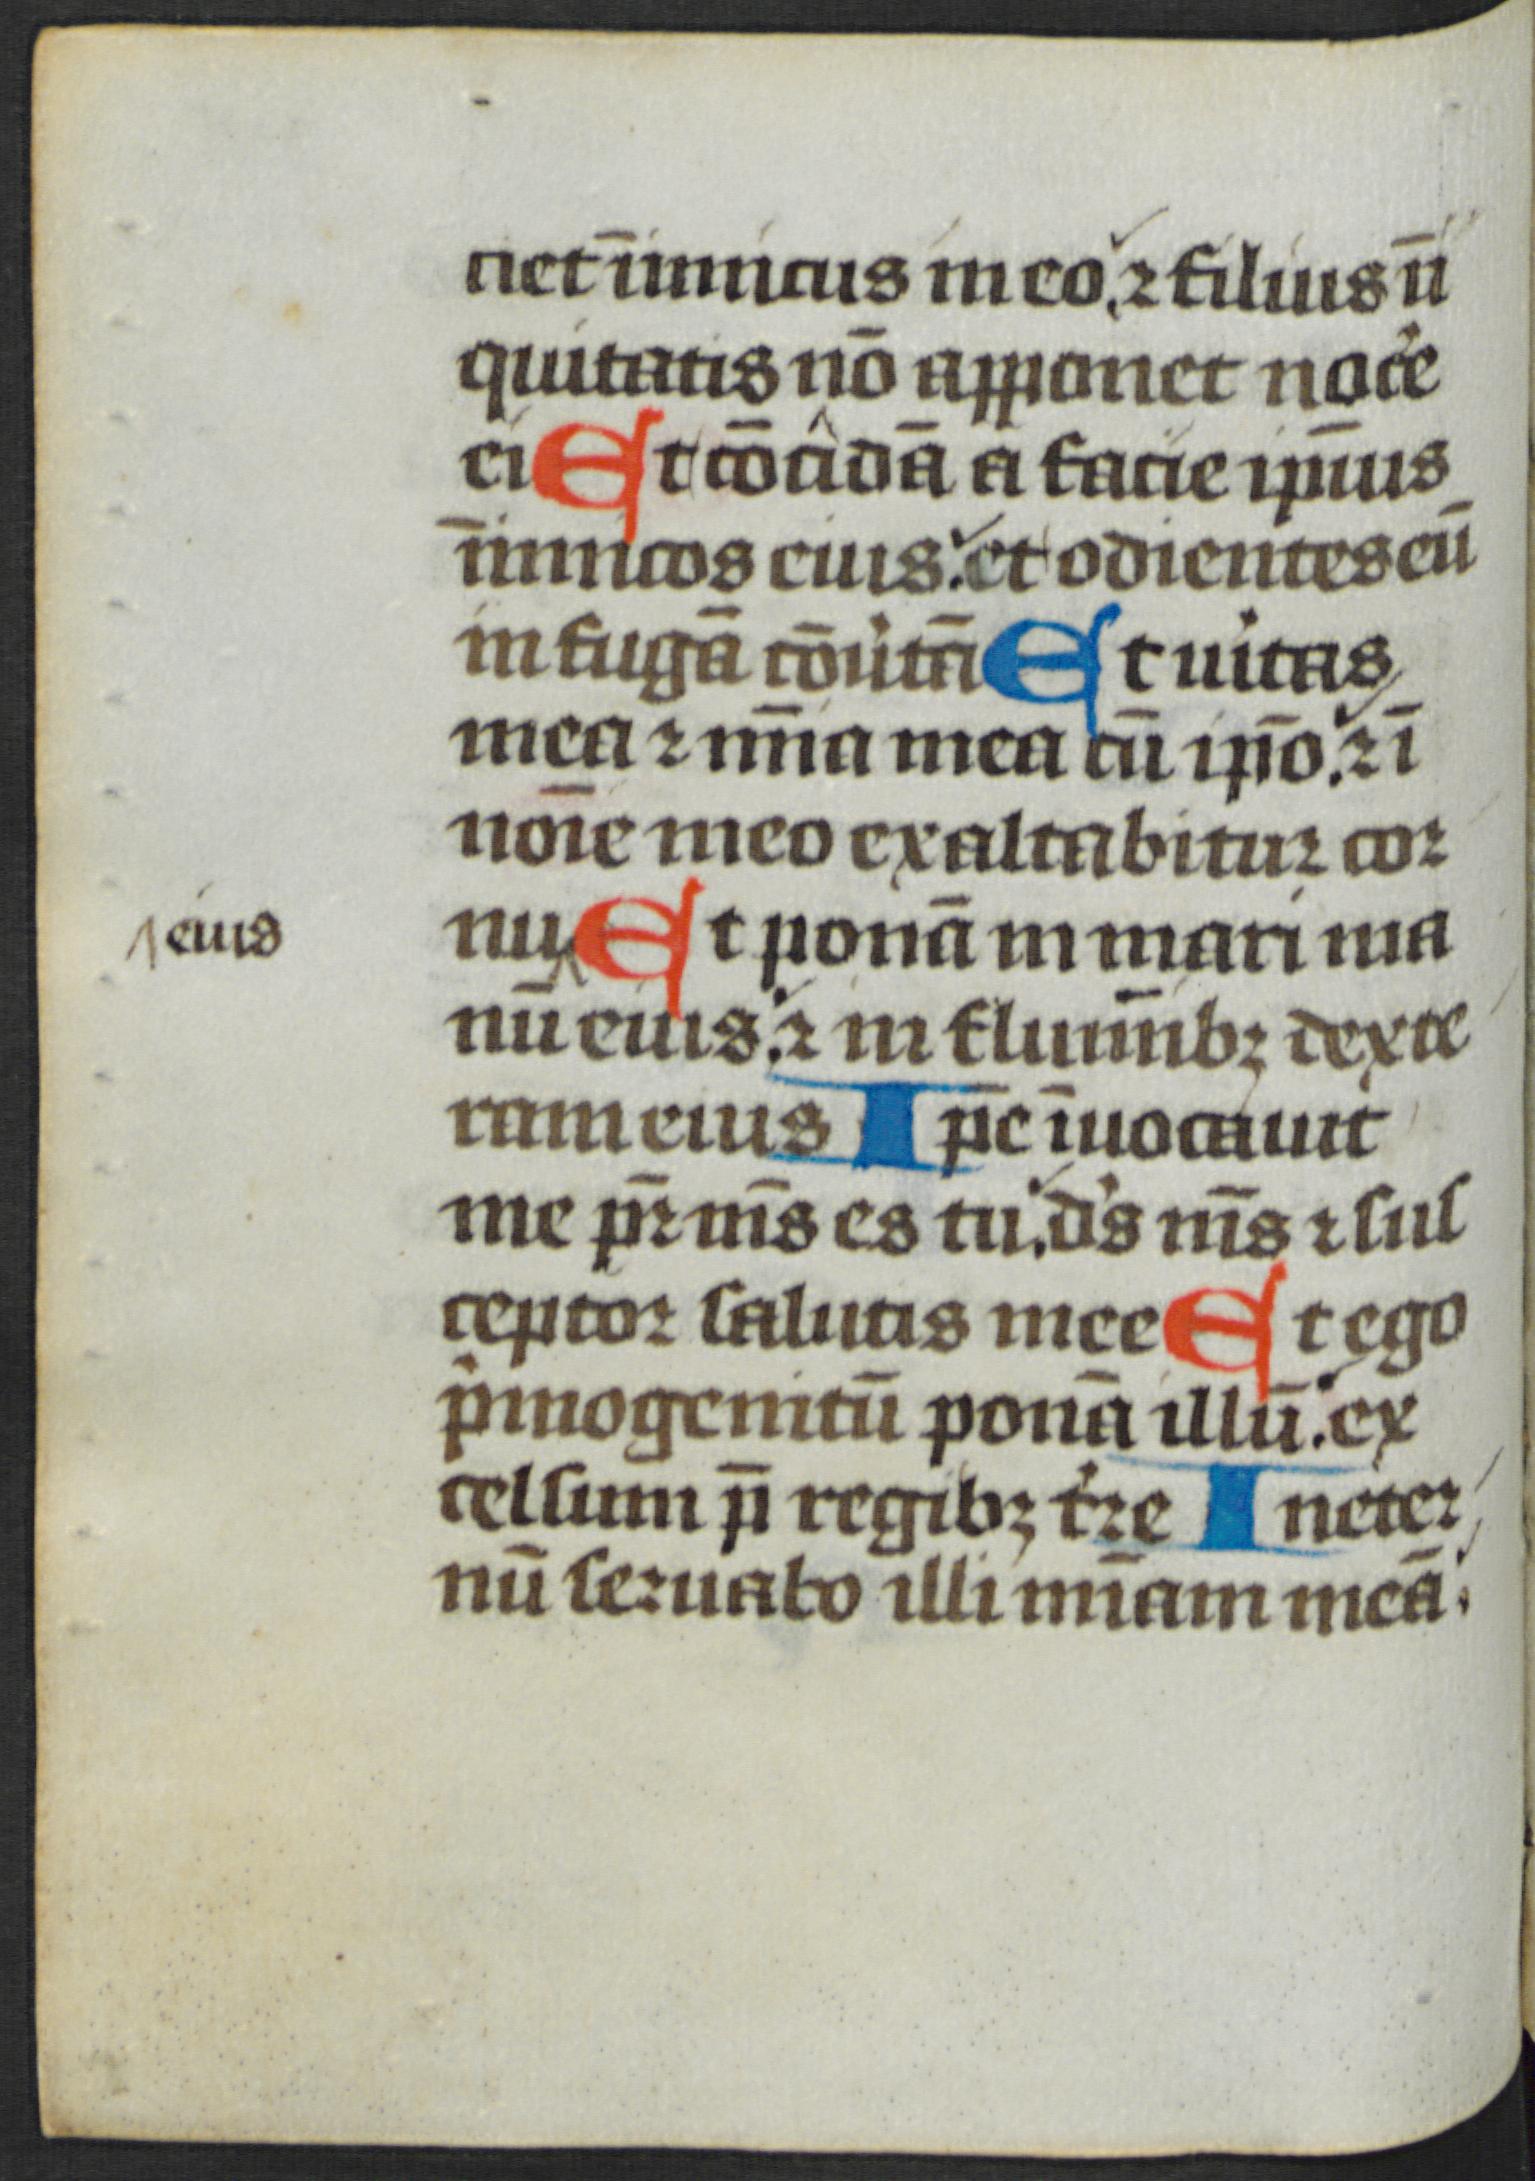 ciet īimicus in eo. ⁊ filius īi
quitatis nō apponet nocẽ
ei Et cōcidā a facie ip̄ius
īimicos eius. et odientes eū
in fugā cōũtā Et ũitas
mea ⁊ mīa mea cū ip̄o. ⁊ ī
noīe meo exaltabitur cor
nu Et ponā in mari ma
eius
nū eius. ⁊ in flumīibꝫ dexte
ram eius Ip̄e īuocauit
me pr̄ m̄s es tu. d̕s m̄s ⁊ sus
ceptor salutis mee Et ego
p̕mogenitū ponā illū. ex
celsum p̄ regibꝫ t̕re In eter
nū seruabo illi mīam meā.